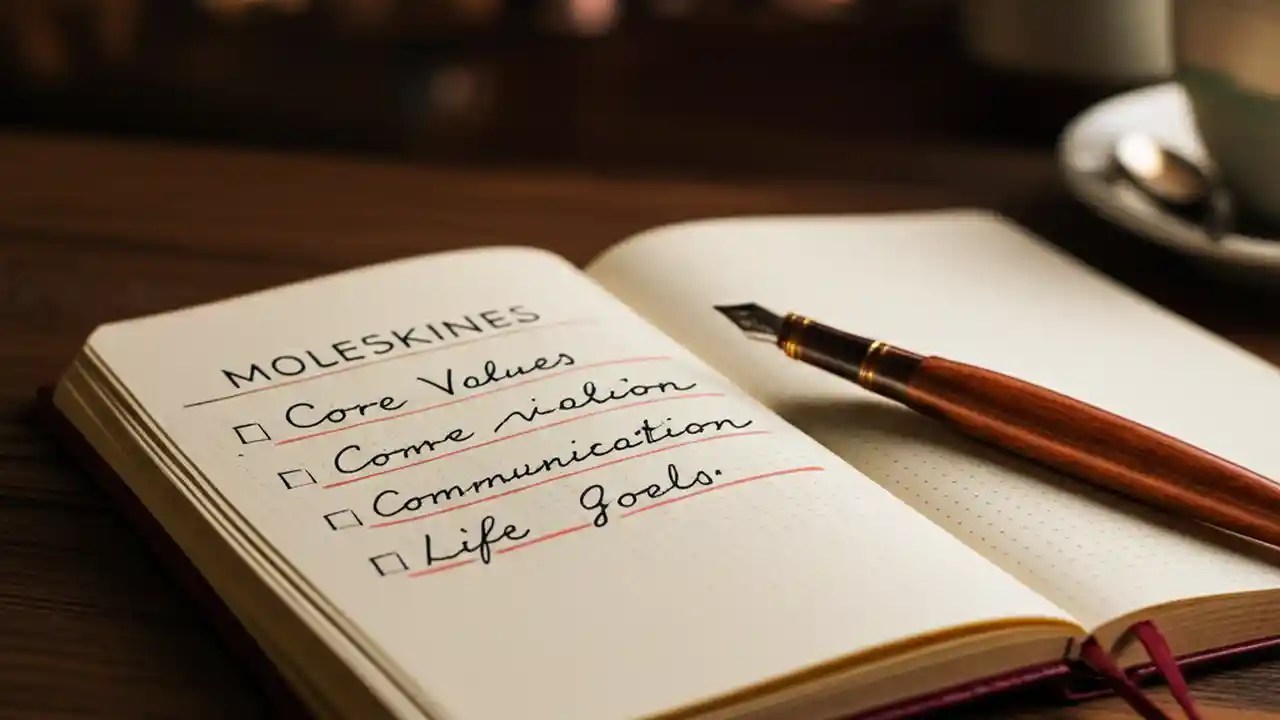 MOLESKINES
Core Values
Come vialion
Communication
Life Goels.